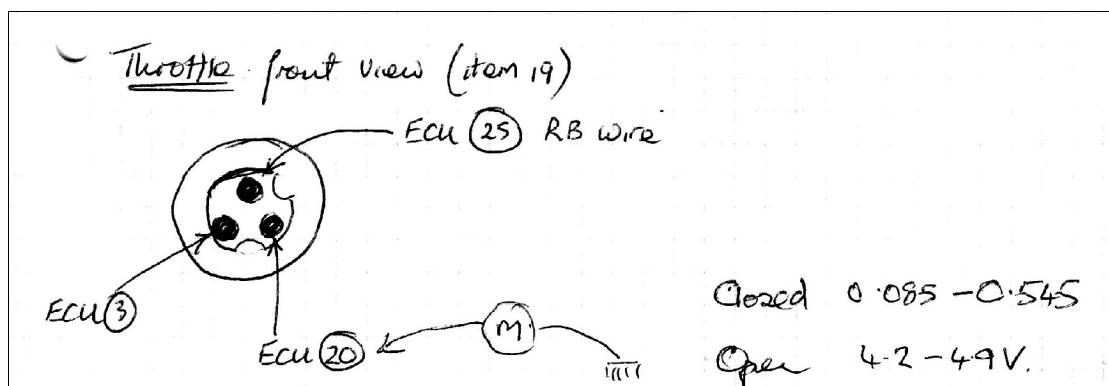 Throttle front view (item 19)
ECU 25 RB wire
ECU 3
ECU 20
M
Closed 0.085 - 0.545
Open 4.2 - 4.9 V.